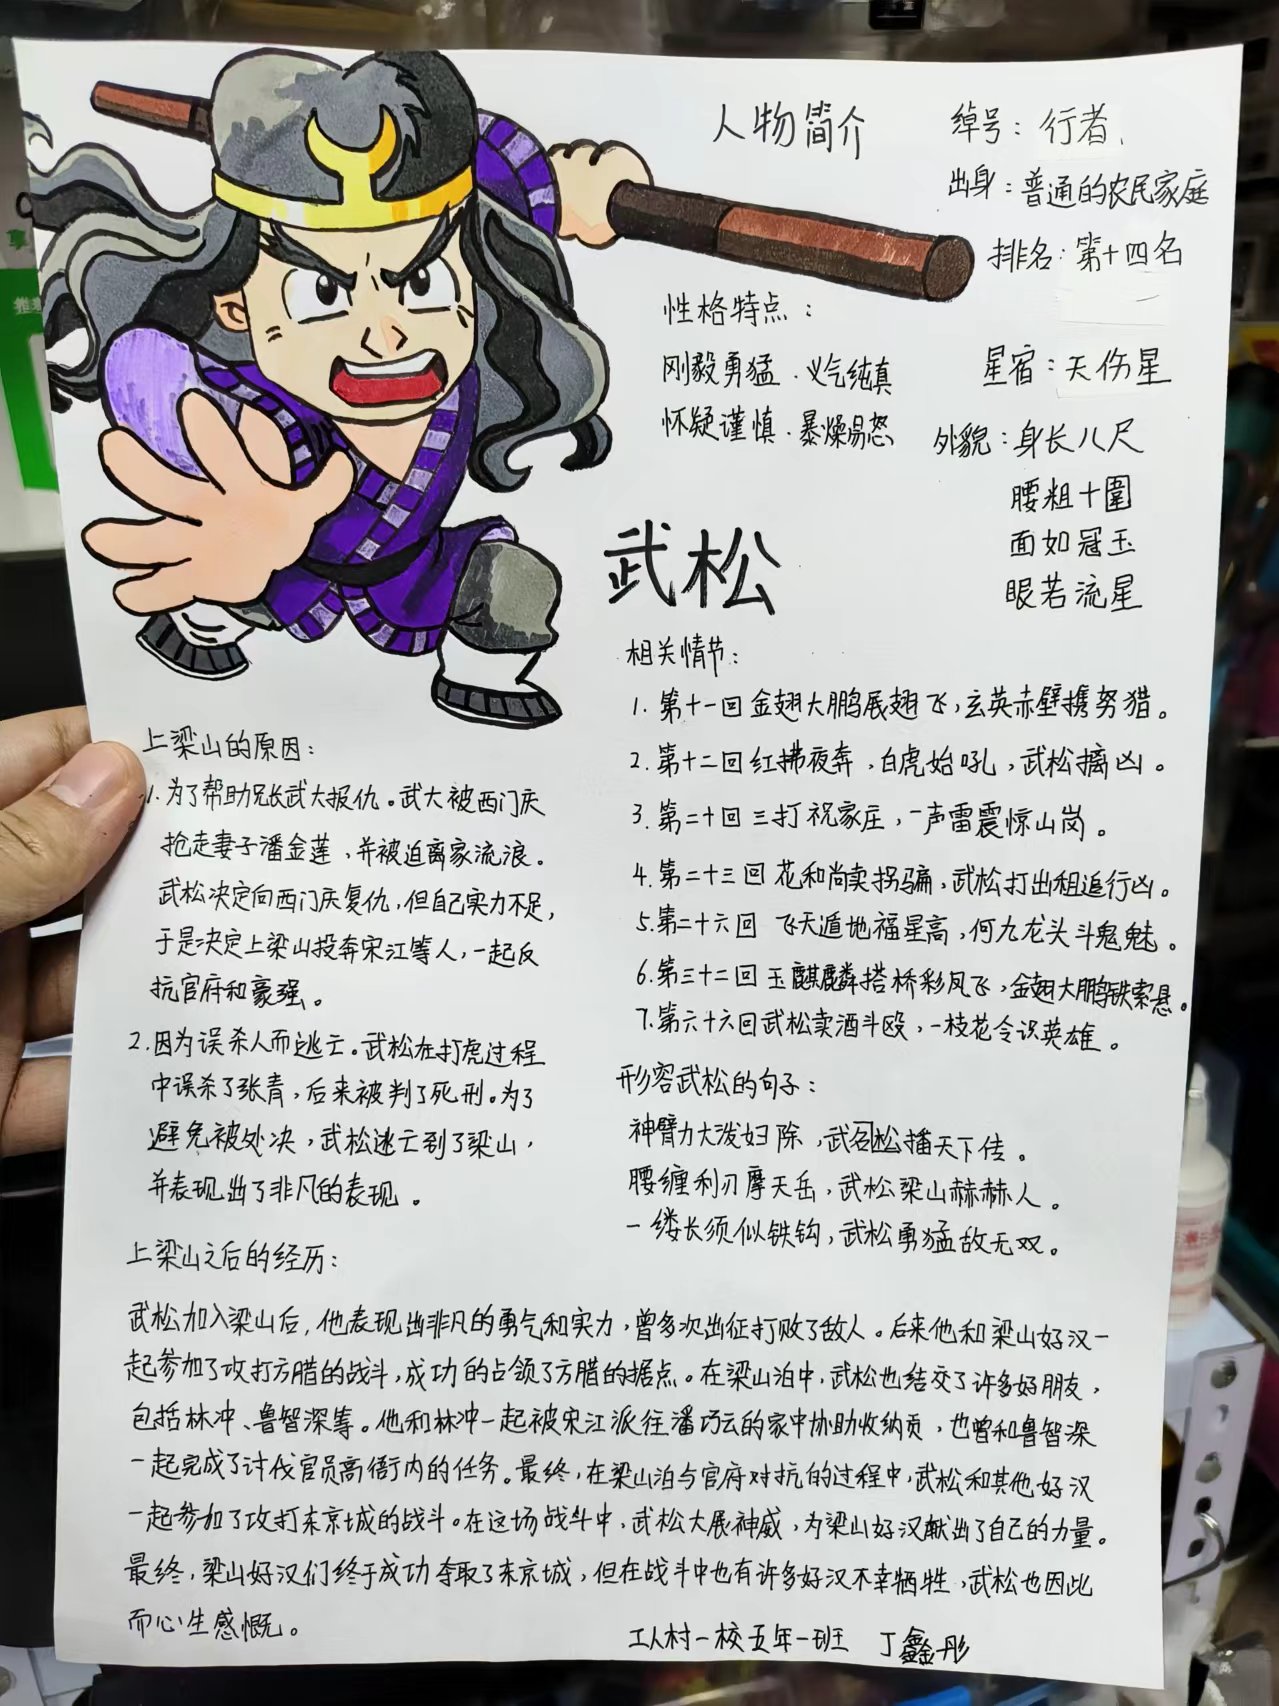 人物简介
绰号：行者
出身：普通的农民家庭
排名：第十四名
星宿：天伤星
外貌：身长八尺
腰粗十圍
面如冠玉
眼若流星
性格特点：
刚毅勇猛、义气纯真
怀疑谨慎、暴燥易怒
武松
相关情节：
1. 第十一回 金翅大鹏展翅飞，玄英赤壁携努猎。
2. 第十二回 红拂夜奔，白虎始吼，武松擒凶。
3. 第二十回 三打祝家庄，一声雷震惊山岗。
4. 第二十三回 花和尚卖拐骗，武松打出租追行凶。
5. 第二十六回 飞天遁地福星高，何九龙头斗鬼魅。
6. 第三十二回 玉麒麟搭桥彩凤飞，金翅大鹏铁索悬。
7. 第六十六回 武松卖酒斗殴，一枝花令识英雄。
形容武松的句子：
神臂力大泼妇除，武名松播天下传。
腰缠利刃摩天岳，武松梁山赫赫人。
一缕长须似铁钩，武松勇猛敌无双。
上梁山的原因：
1. 为了帮助兄长武大报仇。武大被西门庆
抢走妻子潘金莲，并被迫离家流浪。
武松决定向西门庆复仇，但自己实力不足，
于是决定上梁山投奔宋江等人，一起反
抗官府和豪强。
2. 因为误杀人而逃亡。武松在打虎过程
中误杀了张青，后来被判了死刑。为了
避免被处决，武松逃亡到了梁山，
并表现出了非凡的表现。
上梁山之后的经历：
武松加入梁山后，他表现出非凡的勇气和实力，曾多次出征打败了敌人。后来他和梁山好汉一
起参加了攻打方腊的战斗，成功的占领了方腊的据点。在梁山泊中，武松也结交了许多好朋友，
包括林冲、鲁智深等。他和林冲一起被宋江派往潘巧云的家中协助收纳贡，也曾和鲁智深
一起完成了讨伐官员高衙内的任务。最终，在梁山泊与官府对抗的过程中，武松和其他好汉
一起参加了攻打东京城的战斗。在这场战斗中，武松大展神威，为梁山好汉献出了自己的力量。
最终，梁山好汉们终于成功夺取了东京城，但在战斗中也有许多好汉不幸牺牲，武松也因此
而心生感慨。
工人村一校五年一班 丁鑫彤